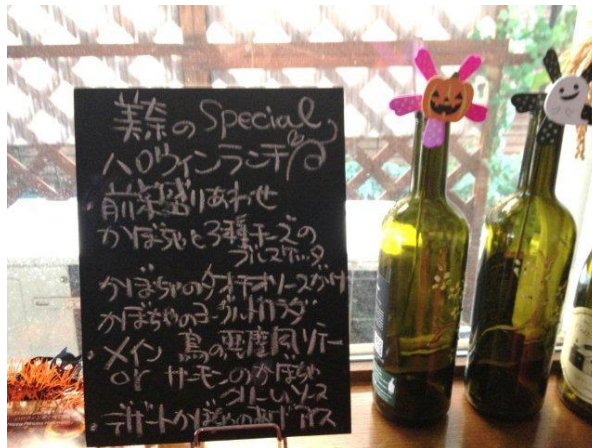 美奈のSpecial
ハロウィンランチ
・前菜盛りあわせ
かぼちゃと3種チーズの
ブルスケッタ
かぼちゃのタネチオソースがけ
かぼちゃのヨーグルトサラダ
・メイン 鳥の悪魔風ソテー
or サーモンのかぼちゃ
クリームソース
・デザートかぼちゃの アイス